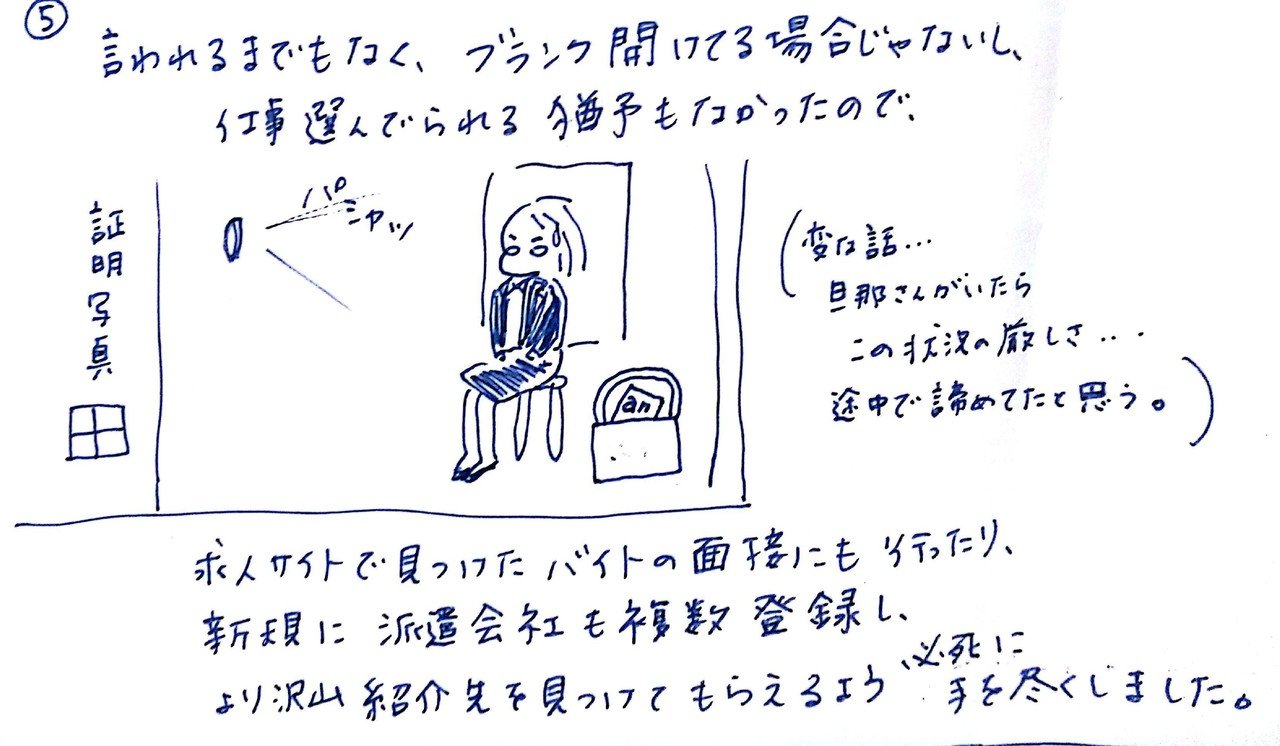 ⑤
言われるまでもなく、ブランク開けてる場合じゃないし、
仕事選んでられる猶予もなかったので、
証明写真
パシャッ
an
(変な話…
旦那さんがいたら
この状況の厳しさ…
途中で諦めてたと思う。)
求人サイトで見つけたバイトの面接にも行ったり、
新規に派遣会社も複数登録し、
より沢山紹介先を見つけてもらえるよう、必死に
手を尽くしました。